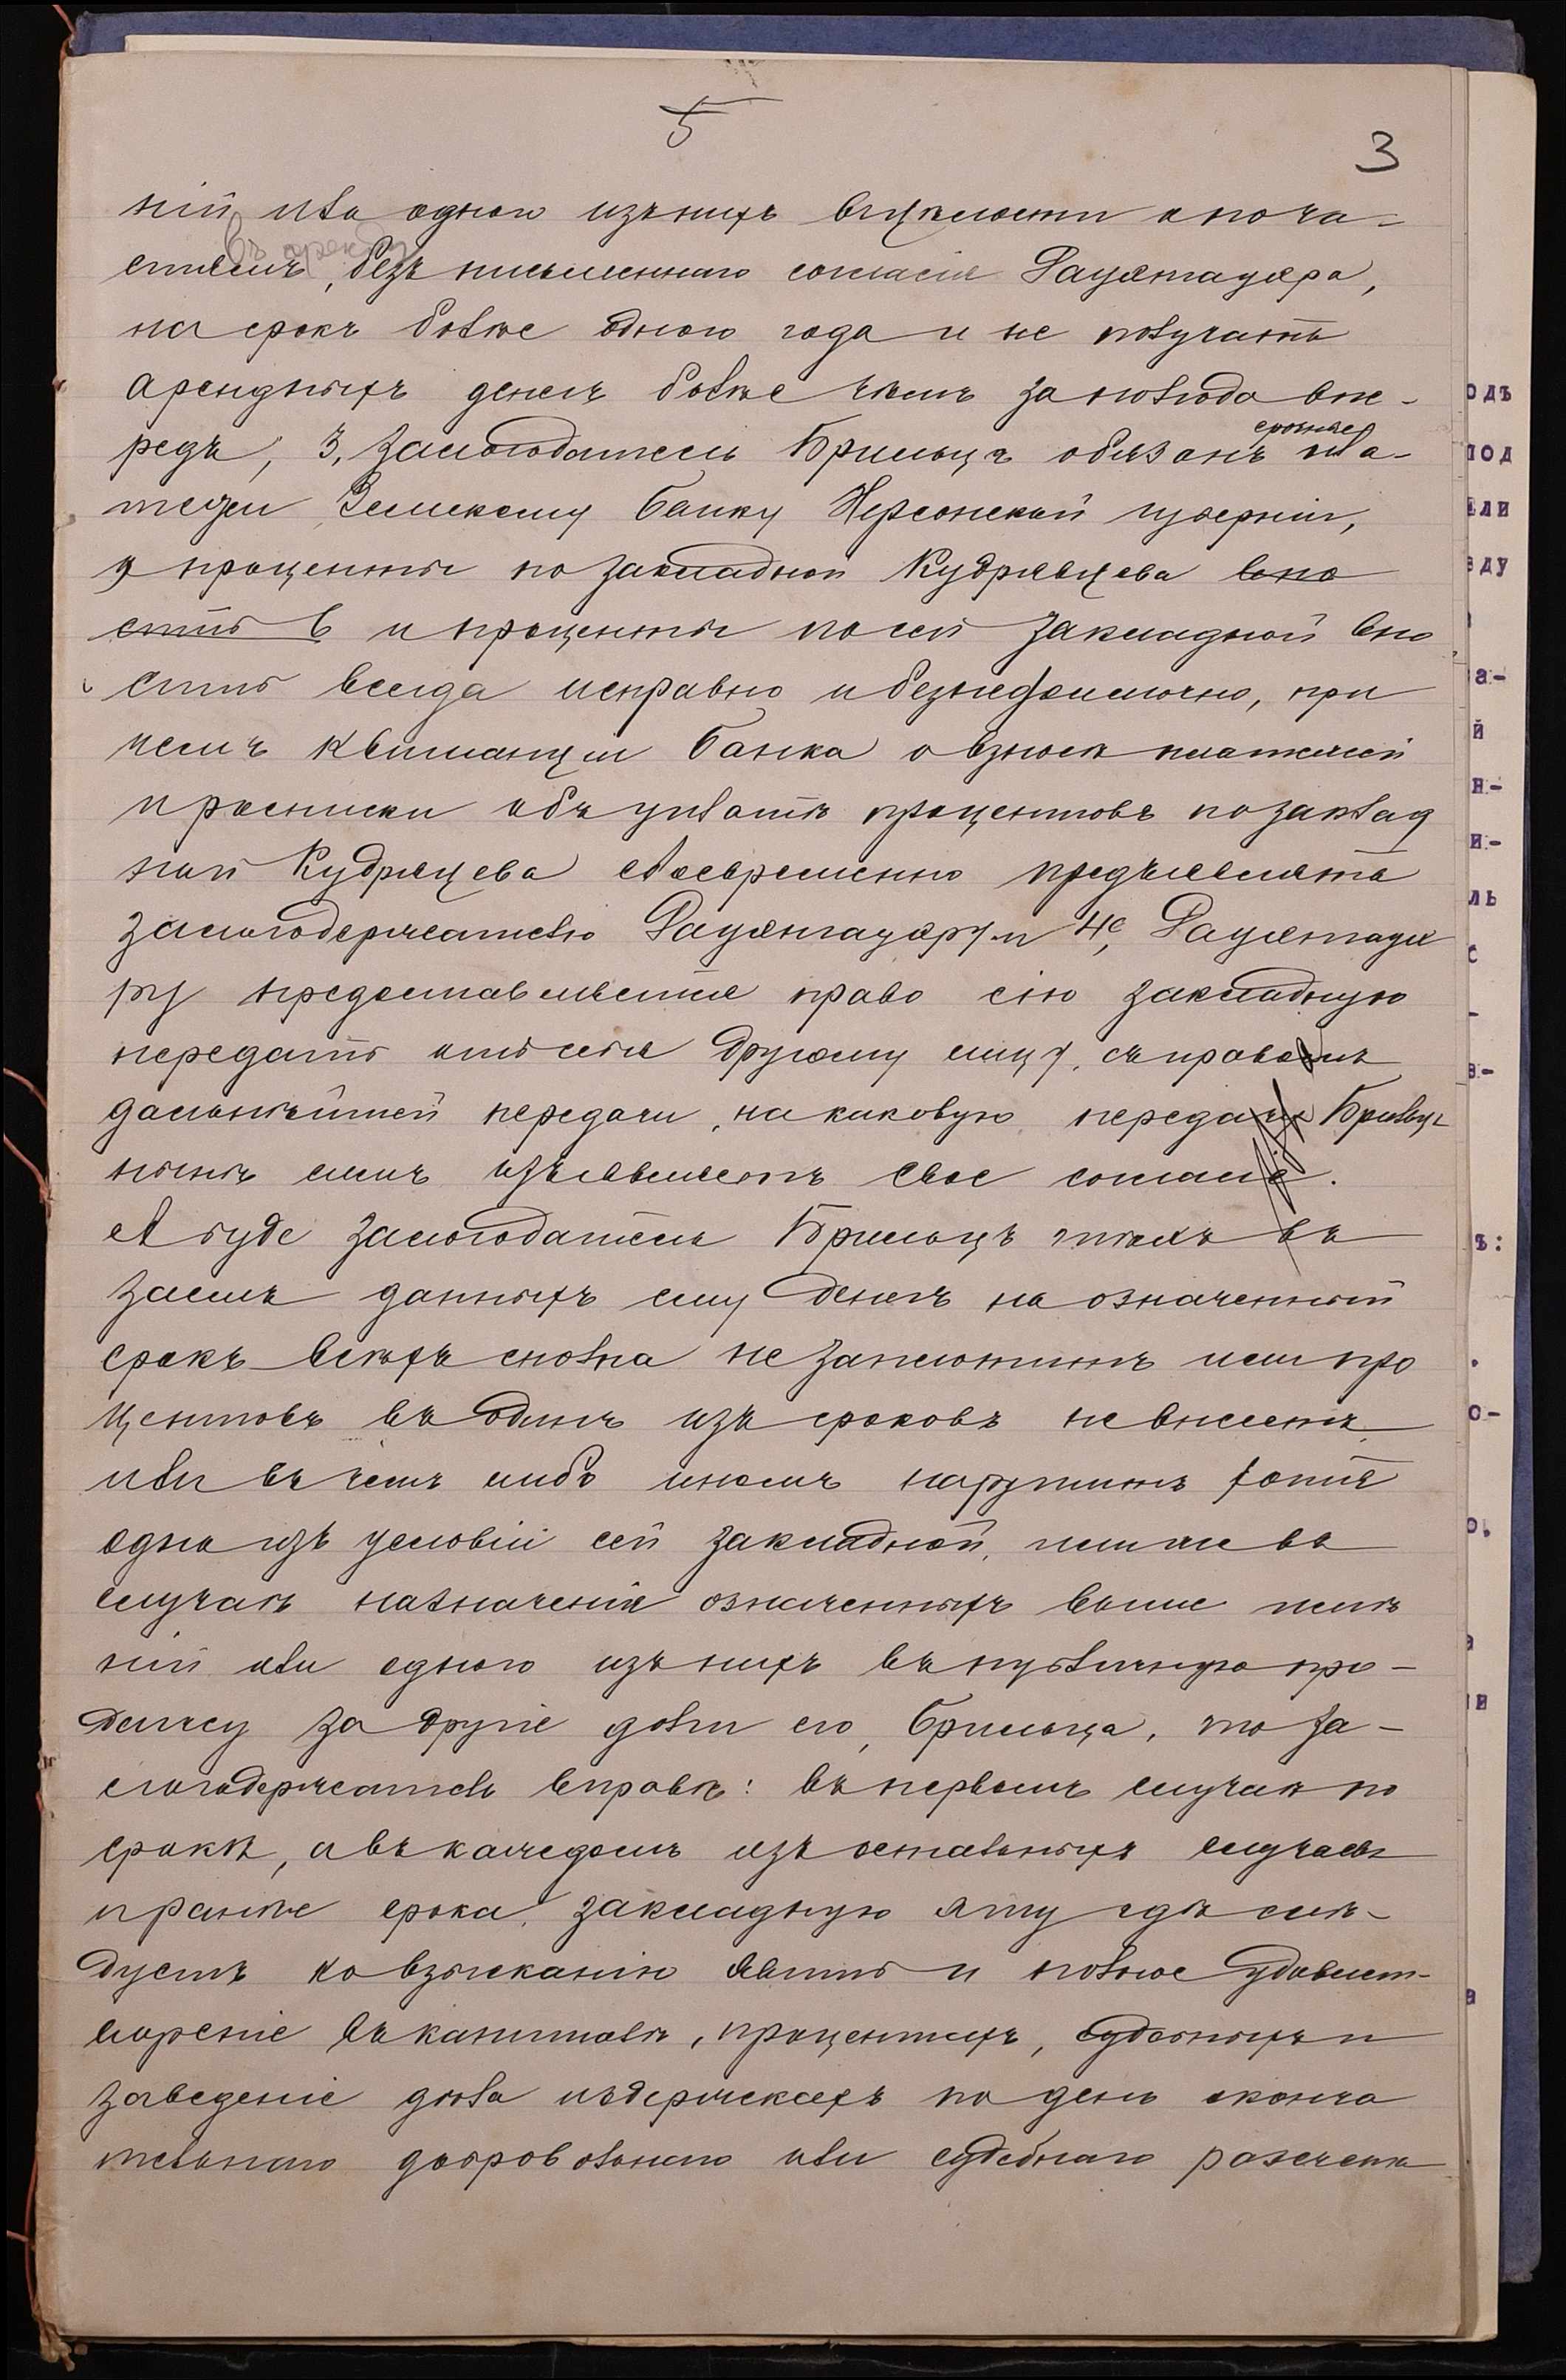 5
3
ній или одного изъ нихъ въ цѣлости и по ча-
въ аренду
стямъ, безъ письменнаго согласія Раухтауера,
на срокъ болѣе одного года и не получать
арендныхъ денегъ болѣе чѣмъ за полгода впе-
редъ, 3, залогодатель Брильцъ обязанъ срочные пла-
тежи Земскому банку Херсонской губерніи,
и проценты по закладной Кудрявцева вно
сить в и проценты по сей закладной вно
сить всегда исправно и безнедоимочно, при
чемъ квитанціи банка о взносѣ платежей
и росписки объ уплатѣ процентовъ по заклад
ной Кудрявцева своевременно предъявлять
залогодержателю Раухтауеру и 4е, Раухтауе
ру предоставляется право сію закладную
передать отъ себя другому лицу, съ правомъ
дальнѣйшей передачи, на каковую передачу Брильцъ
нынѣ симъ изъявляетъ свое согласіе.
А буде залогодатель Брильцъ тѣхъ въ
заемъ данныхъ ему денегъ на означенный
срокъ всѣхъ сполна не заплотитъ или про
центовъ въ одинъ изъ сроковъ не внесетъ
или въ чемъ либо иномъ нарушитъ хотя
одно изъ условій сей закладной, или же въ
случаѣ назначенія означенныхъ выше имѣ
ній или одного изъ нихъ въ публичную про-
дажу за другіе долги его, Брильца, то за-
логодержатель вправѣ: въ первомъ случаѣ по
срокѣ, а въ каждомъ изъ остальныхъ случаевъ
и ранѣе срока, закладную эту гдѣ слѣ-
дуетъ ко взысканію явить и полное удовлет-
вореніе въ капиталѣ, процентахъ, судебныхъ и
заведеніе дѣла издержкахъ по день оконча
тельнаго добровольнаго или судебнаго разсчета